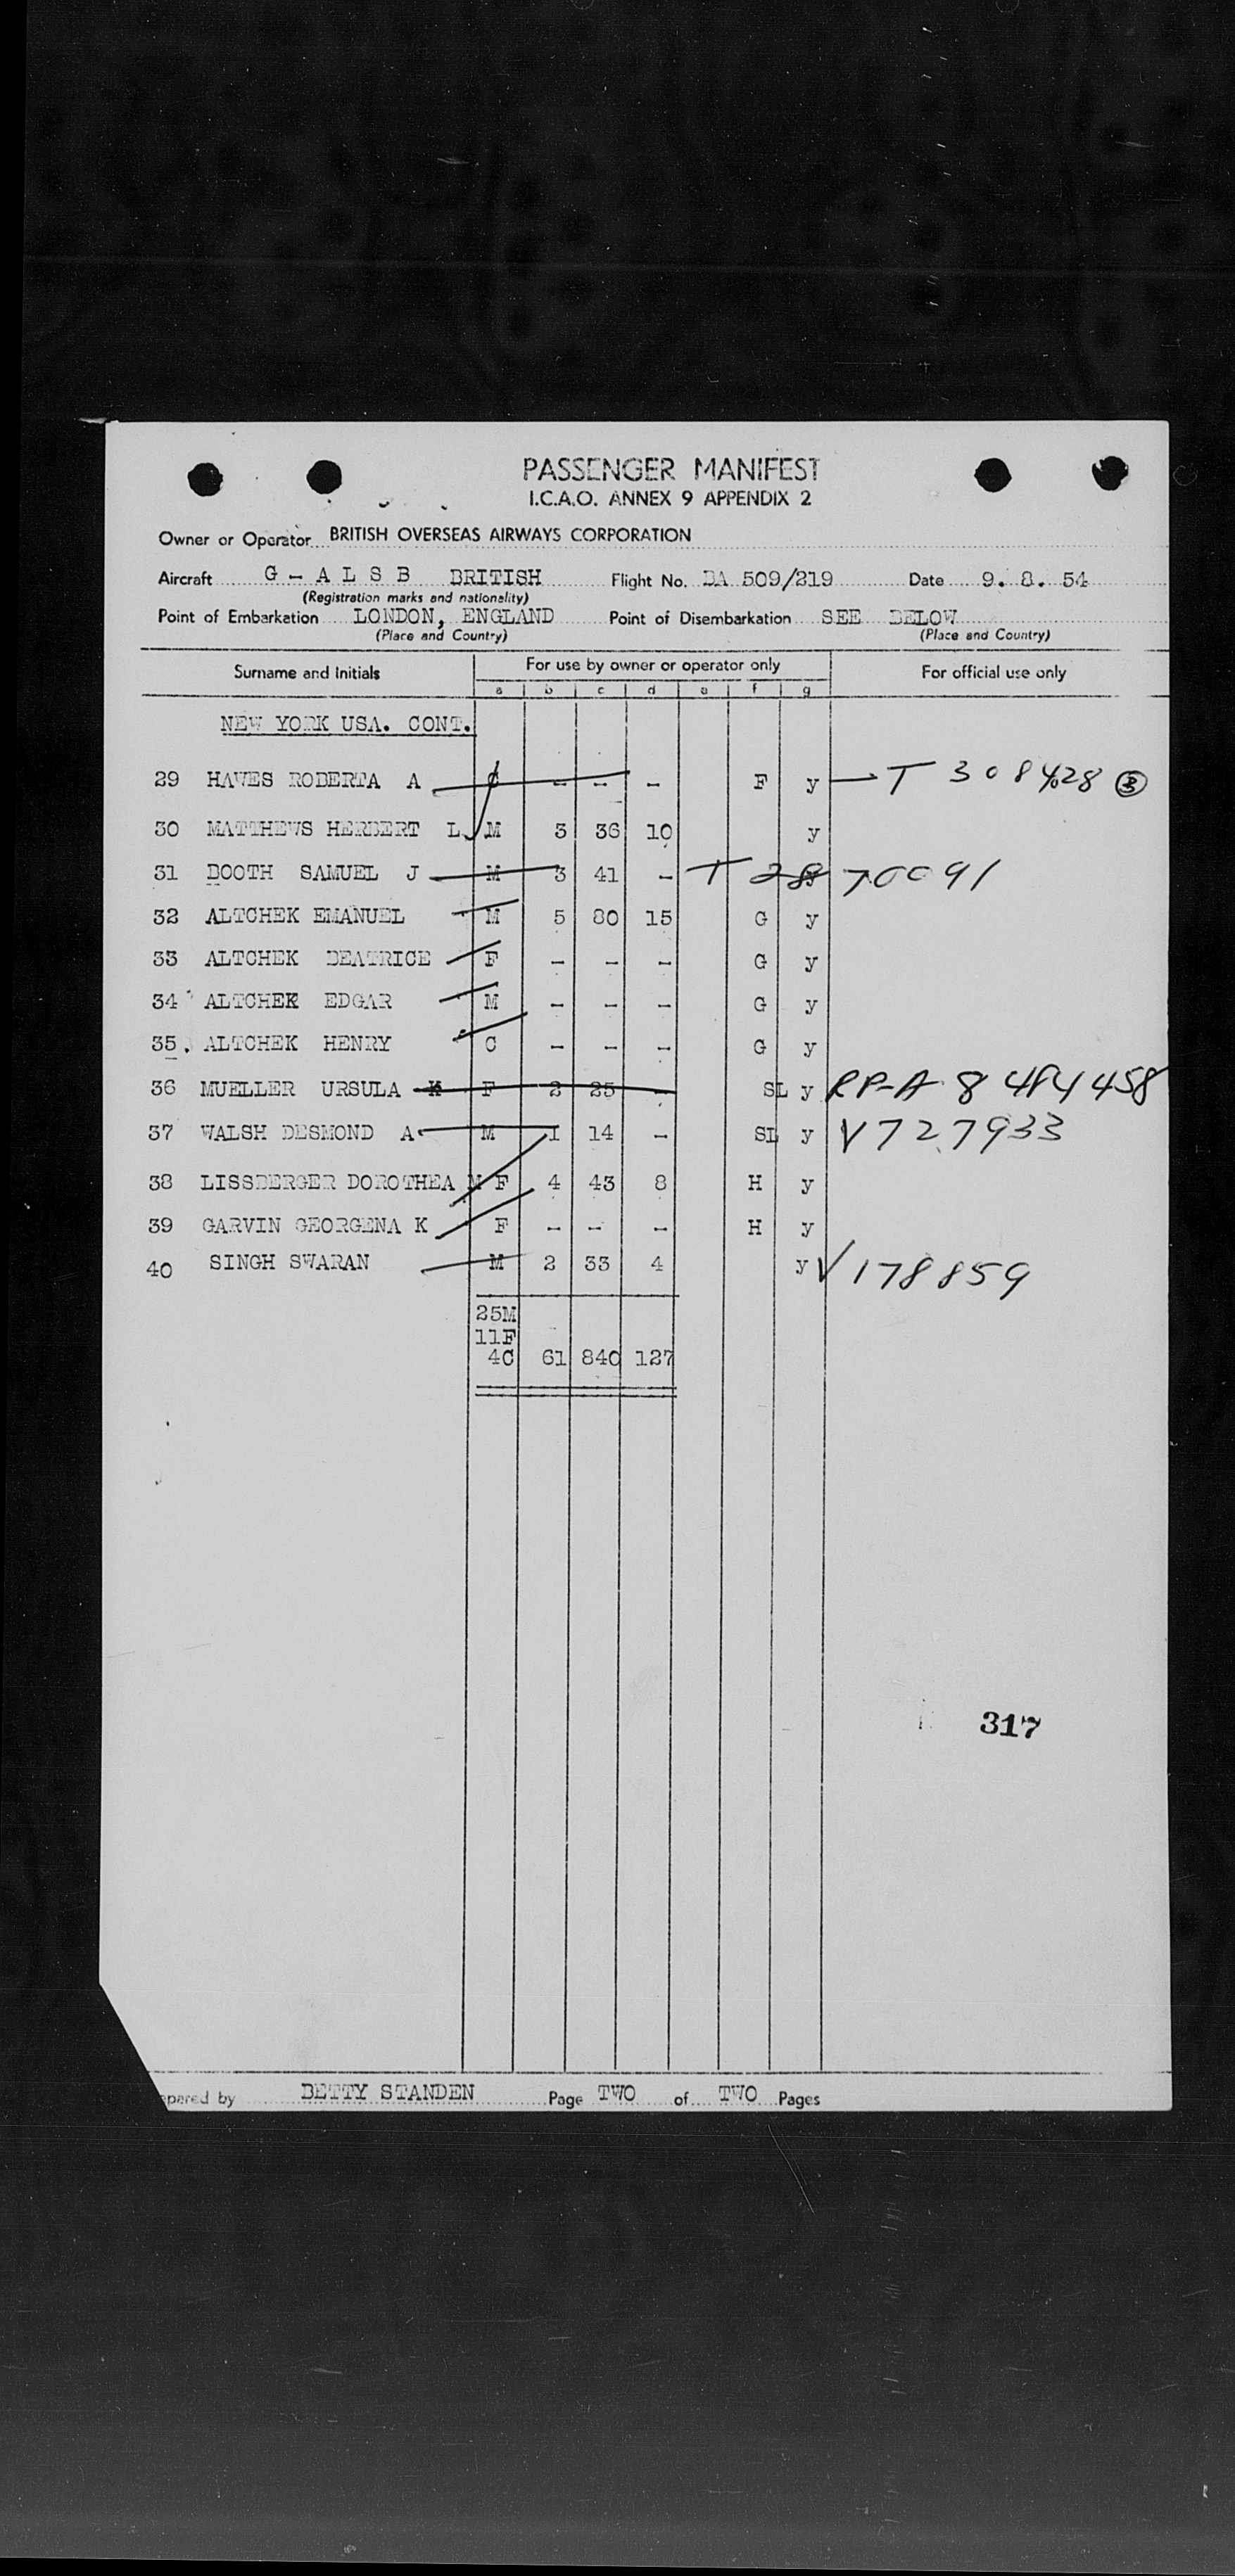 PASSENGER MANIFEST
I.C.A.O. ANNEX 9 APPENDIX 2
Owner or Operator BRITISH OVERSEAS AIRWAYS CORPORATION
Aircraft G - A L S B BRITISH Flight No. BA 509/219 Date 9. 8. 54
(Registration marks and nationality)
Point of Embarkation LONDON, ENGLAND Point of Disembarkation SEE BELOW
(Place and Country) (Place and Country)
Surname and Initials For use by owner or operator only For official use only
a b c d e f g
NEW YORK USA. CONT.
29 HAVES ROBERTA A C - - - F y T 308428 3
30 MATTHEWS HERBERT L M 3 36 10 y
31 BOOTH SAMUEL J M 3 41 - y T 2870091
32 ALTCHEK EMANUEL M 5 80 15 G y
33 ALTCHEK BEATRICE F - - - G y
34 ALTCHEK EDGAR M - - - G y
35. ALTCHEK HENRY C - - - G y
36 MUELLER URSULA K F 2 25 - SL y RP-A 8 484 458
37 WALSH DESMOND A M 1 14 - SL y V727933
38 LISSBERGER DOROTHEA M F 4 43 8 H y
39 GARVIN GEORGENA K F - - - H y
40 SINGH SWARAN M 2 33 4 y V178859
25M
11F
4C 61 840 127
317
epared by BETTY STANDEN Page TWO of TWO Pages